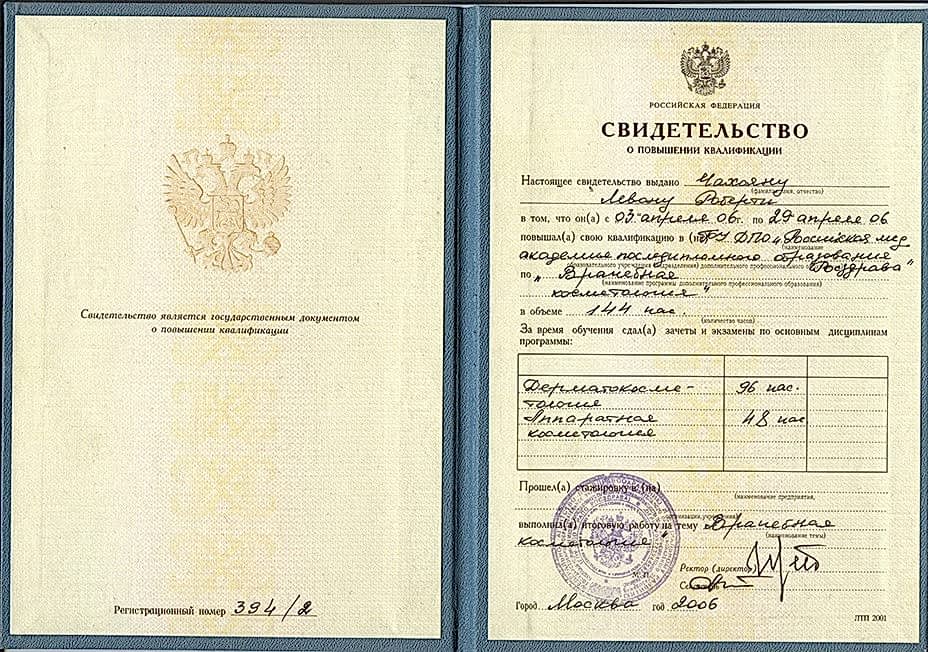 Свидетельство является государственным документом
о повышении квалификации
Регистрационный номер 394/2
РОССИЙСКАЯ ФЕДЕРАЦИЯ
СВИДЕТЕЛЬСТВО
О ПОВЫШЕНИИ КВАЛИФИКАЦИИ
Настоящее свидетельство выдано Чахояну
(фамилия, имя, отчество)
Левону Роберти
в том, что он(а) с 03 апреля 06г. по 29 апреля 06
повышал(а) свою квалификацию в (на) ГУ ДПО „Российская мед
(наименование
академия последипломного образования
образовательного учреждения (подразделения) дополнительного профессионального
Росздрава"
по „Врачебная
(наименование программы дополнительного профессионального образования)
косметология"
в объеме 144 час.
(количество часов)
За время обучения сдал(а) зачеты и экзамены по основным дисциплинам
программы:
Дерматокосме- 96 час.
тология
Аппаратная 48 час
косметология
Прошел(а) стажировку в (на)
(наименование предприятия,
организации, учреждения)
выполнил(а) итоговую работу на тему „Врачебная
(наименование темы)
косметология"
Ректор (директор)
Город Москва год 2006
ЛТП 2001